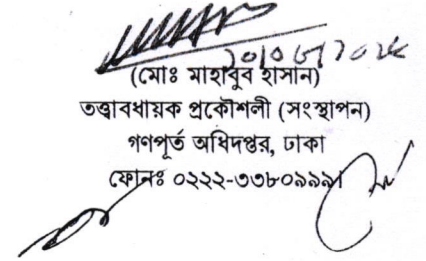 (মোঃ মাহাবুব হাসান)
তত্ত্বাবধায়ক প্রকৌশলী (সংস্থাপন)
গণপূর্ত অধিদপ্তর, ঢাকা
ফোনঃ ০২২২-৩৩৮০৯৯৯১